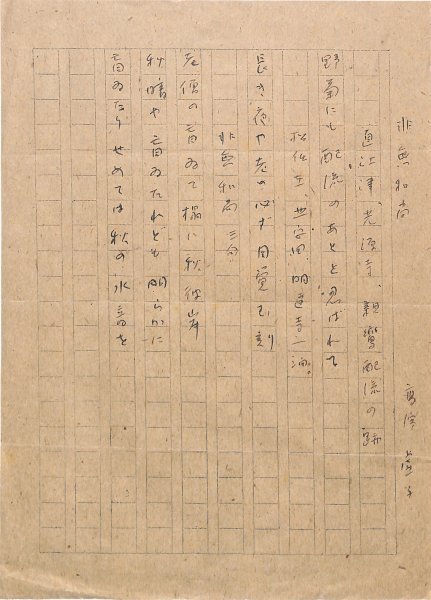 非無和尚
高濱虚子
直江津、光源寺、親鸞配流の跡
野菊にも配流のあとと思はれて
松任在、出字田、明達寺一泊。
長き夜や老の必ず目覚む刻
非無和尚 三句
老僧の盲ゐて撮に秋彼岸
秋晴や盲ゐたれども明らかに
盲ゐたりせめては秋の水音を